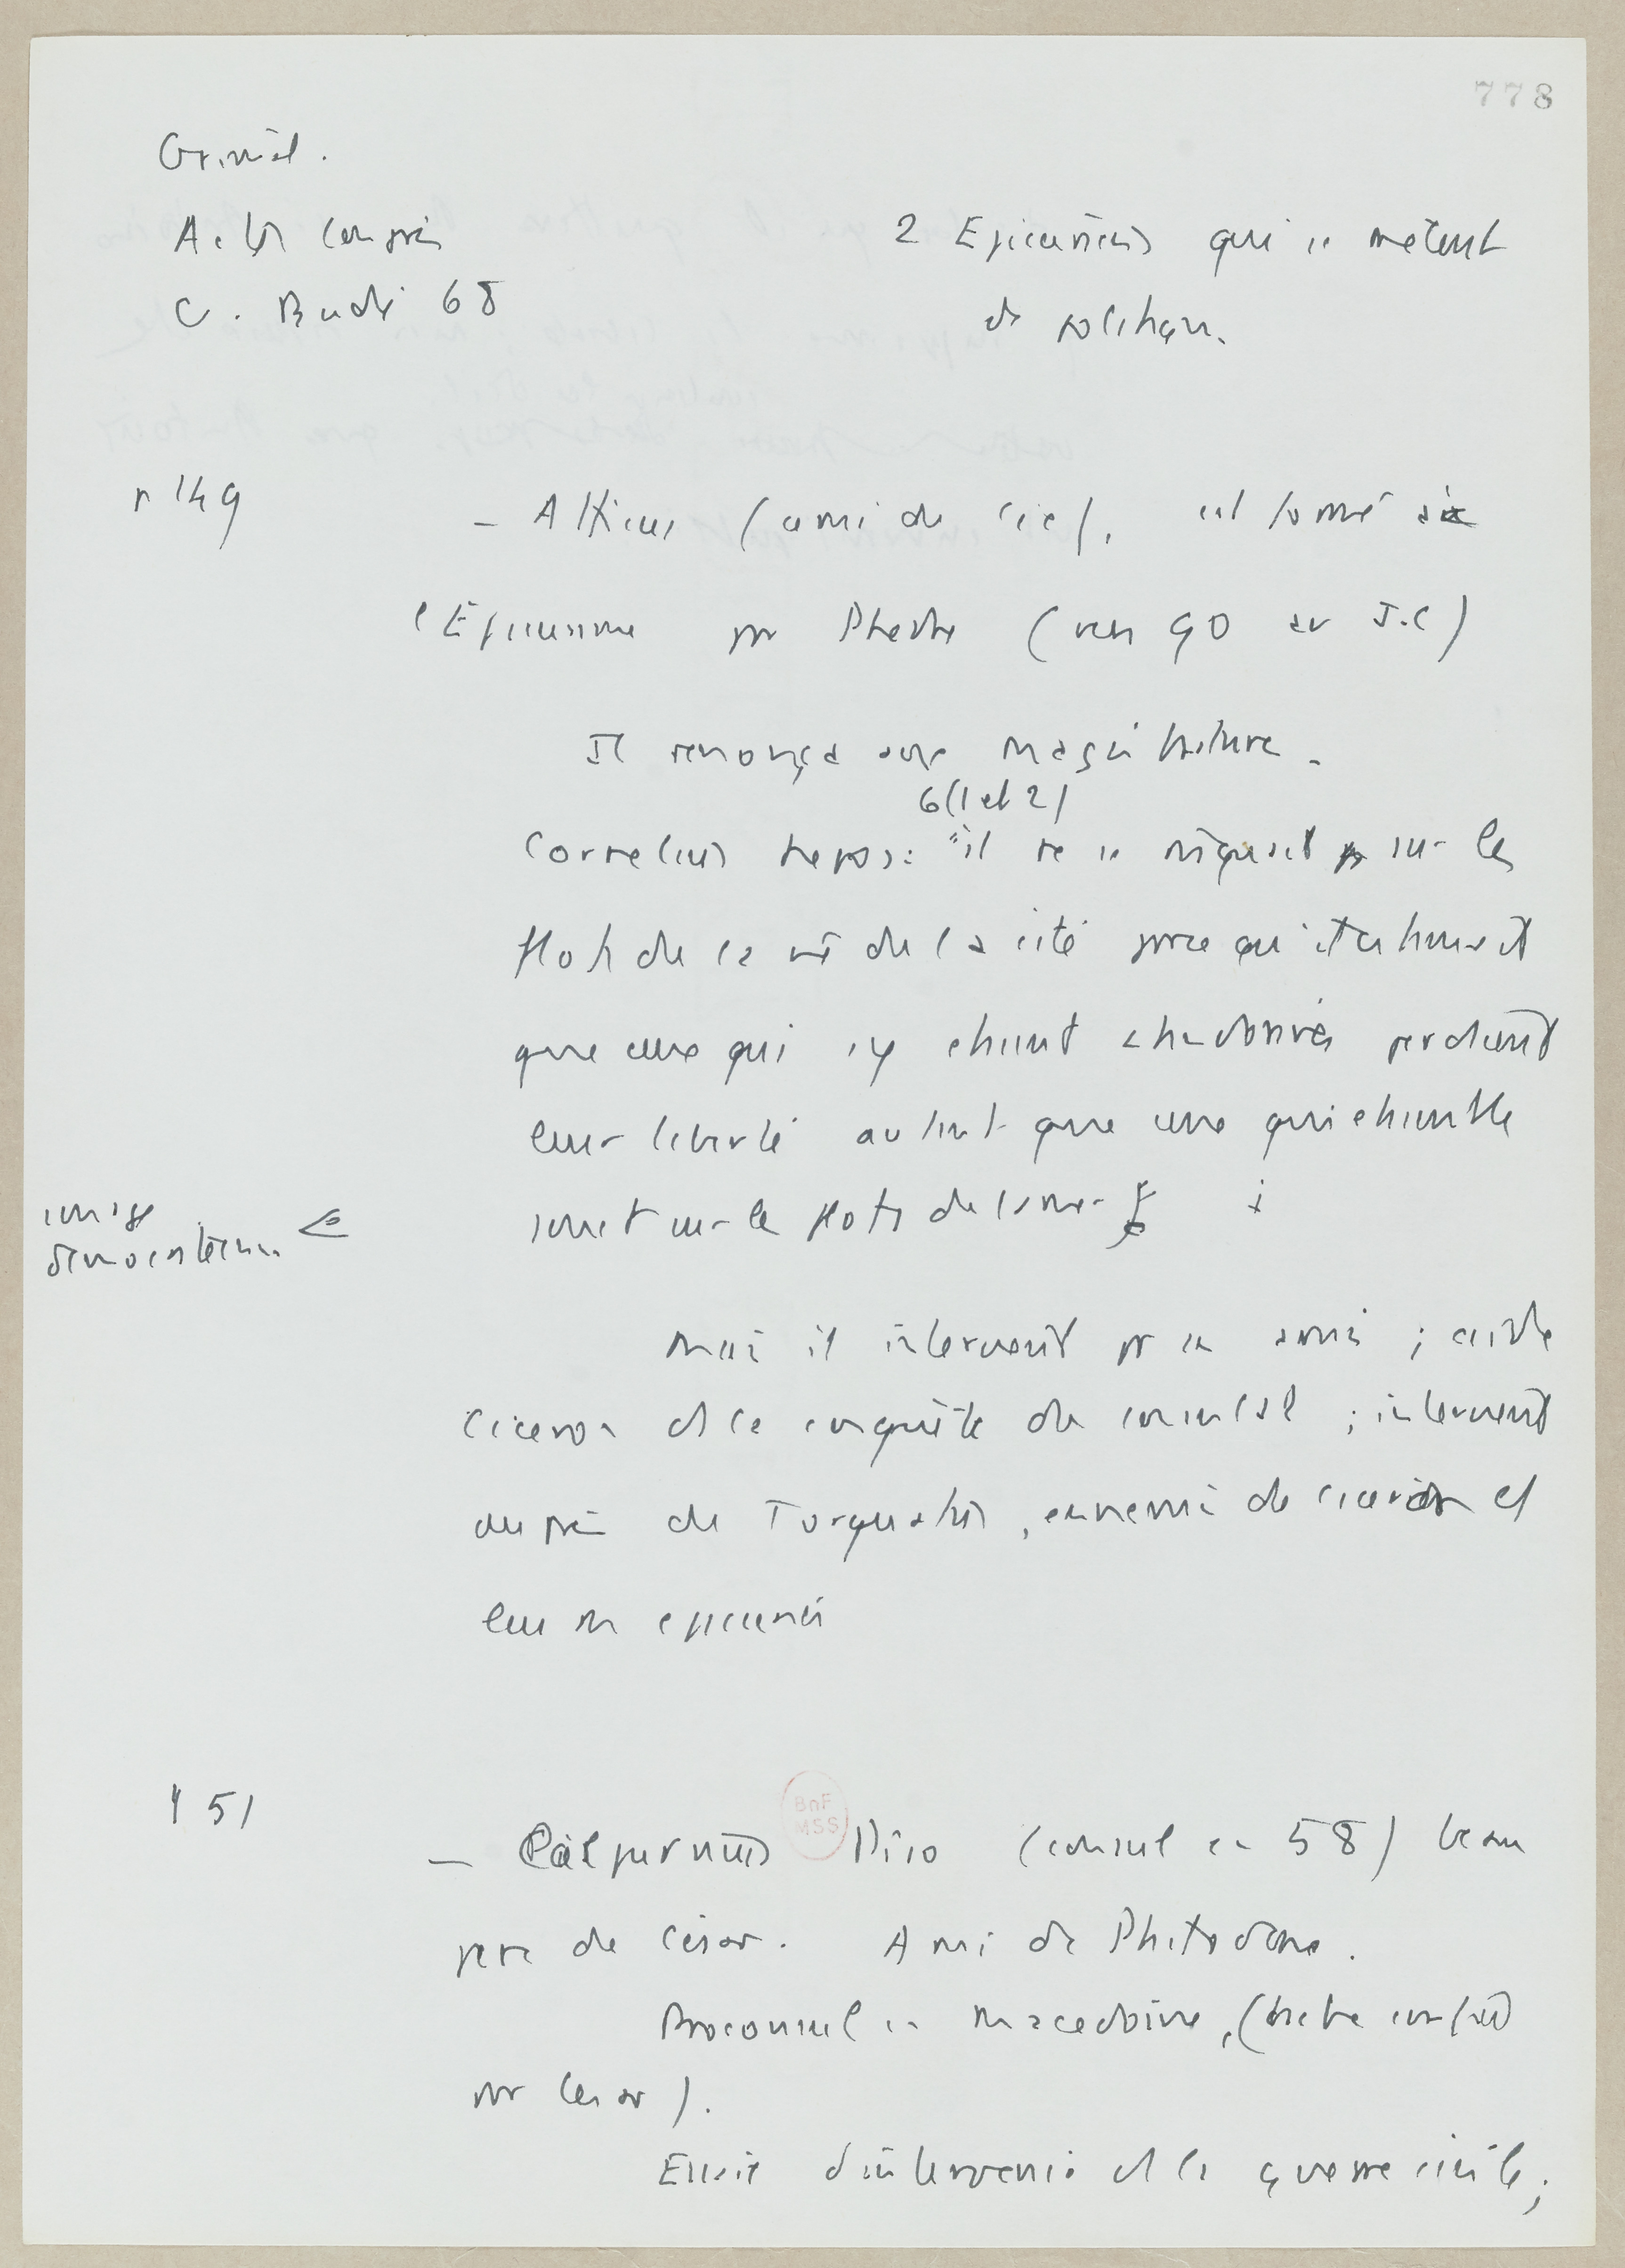 778
Grimal.
Actes congrès
G. Budé 68
2 Epicuriens qui se mêlent
de politique.
p 149
- Atticus (ami de Cic). est formé à
l'Epicurisme par Phèdre (vers 90 av J.C)
Il renonça aux magistratures.
6 (1 et 2)
Cornelius Nepos: "il ne se risquait pas sur les
flots de la vie de la cité parce qu'il estimait
que ceux qui s'y étaient abandonnés perdaient
leur liberté autant que ceux qui étaient ballottés
sur les flots de la mer
image
Mais il intervient pr ses amis ; aide
Ciceron ds la conquête du consulat ; intervient
auprès de Torquatus, ennemi de Ciceron et
epicurien
p 151
- Calpurnius Piso (consul en 58) beau
père de César. Ami de Philodème.
BnF
MSS
Proconsul en Macedoine, (tache confiée
par Cesar).
Essaie d'intervenir ds la guerre civile ;